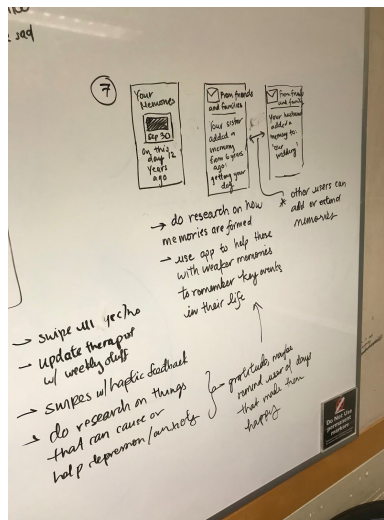 sad
7
Your
Memories
Sep 30
on this
day 12
years
ago
From friends
and families
Your sister
added a
memory
from 6 years
ago:
getting your
dog
From friends
and family
Your husband
added a
memory to:
"our
wedding"
other users can
add or extend
memories
→ do research on how
memories are formed
→ use app to help those
with weaker memories
to remember key events
in their life
→ swipe UI yes/no
→ update therapist
w/ weekly stuff
→ swipes w/ haptic feedback
→ do research on things
that can cause or
help depression/anxiety
gratitude, maybe
remind user of days
that made them
happy
Do Not Use
permanent
markers